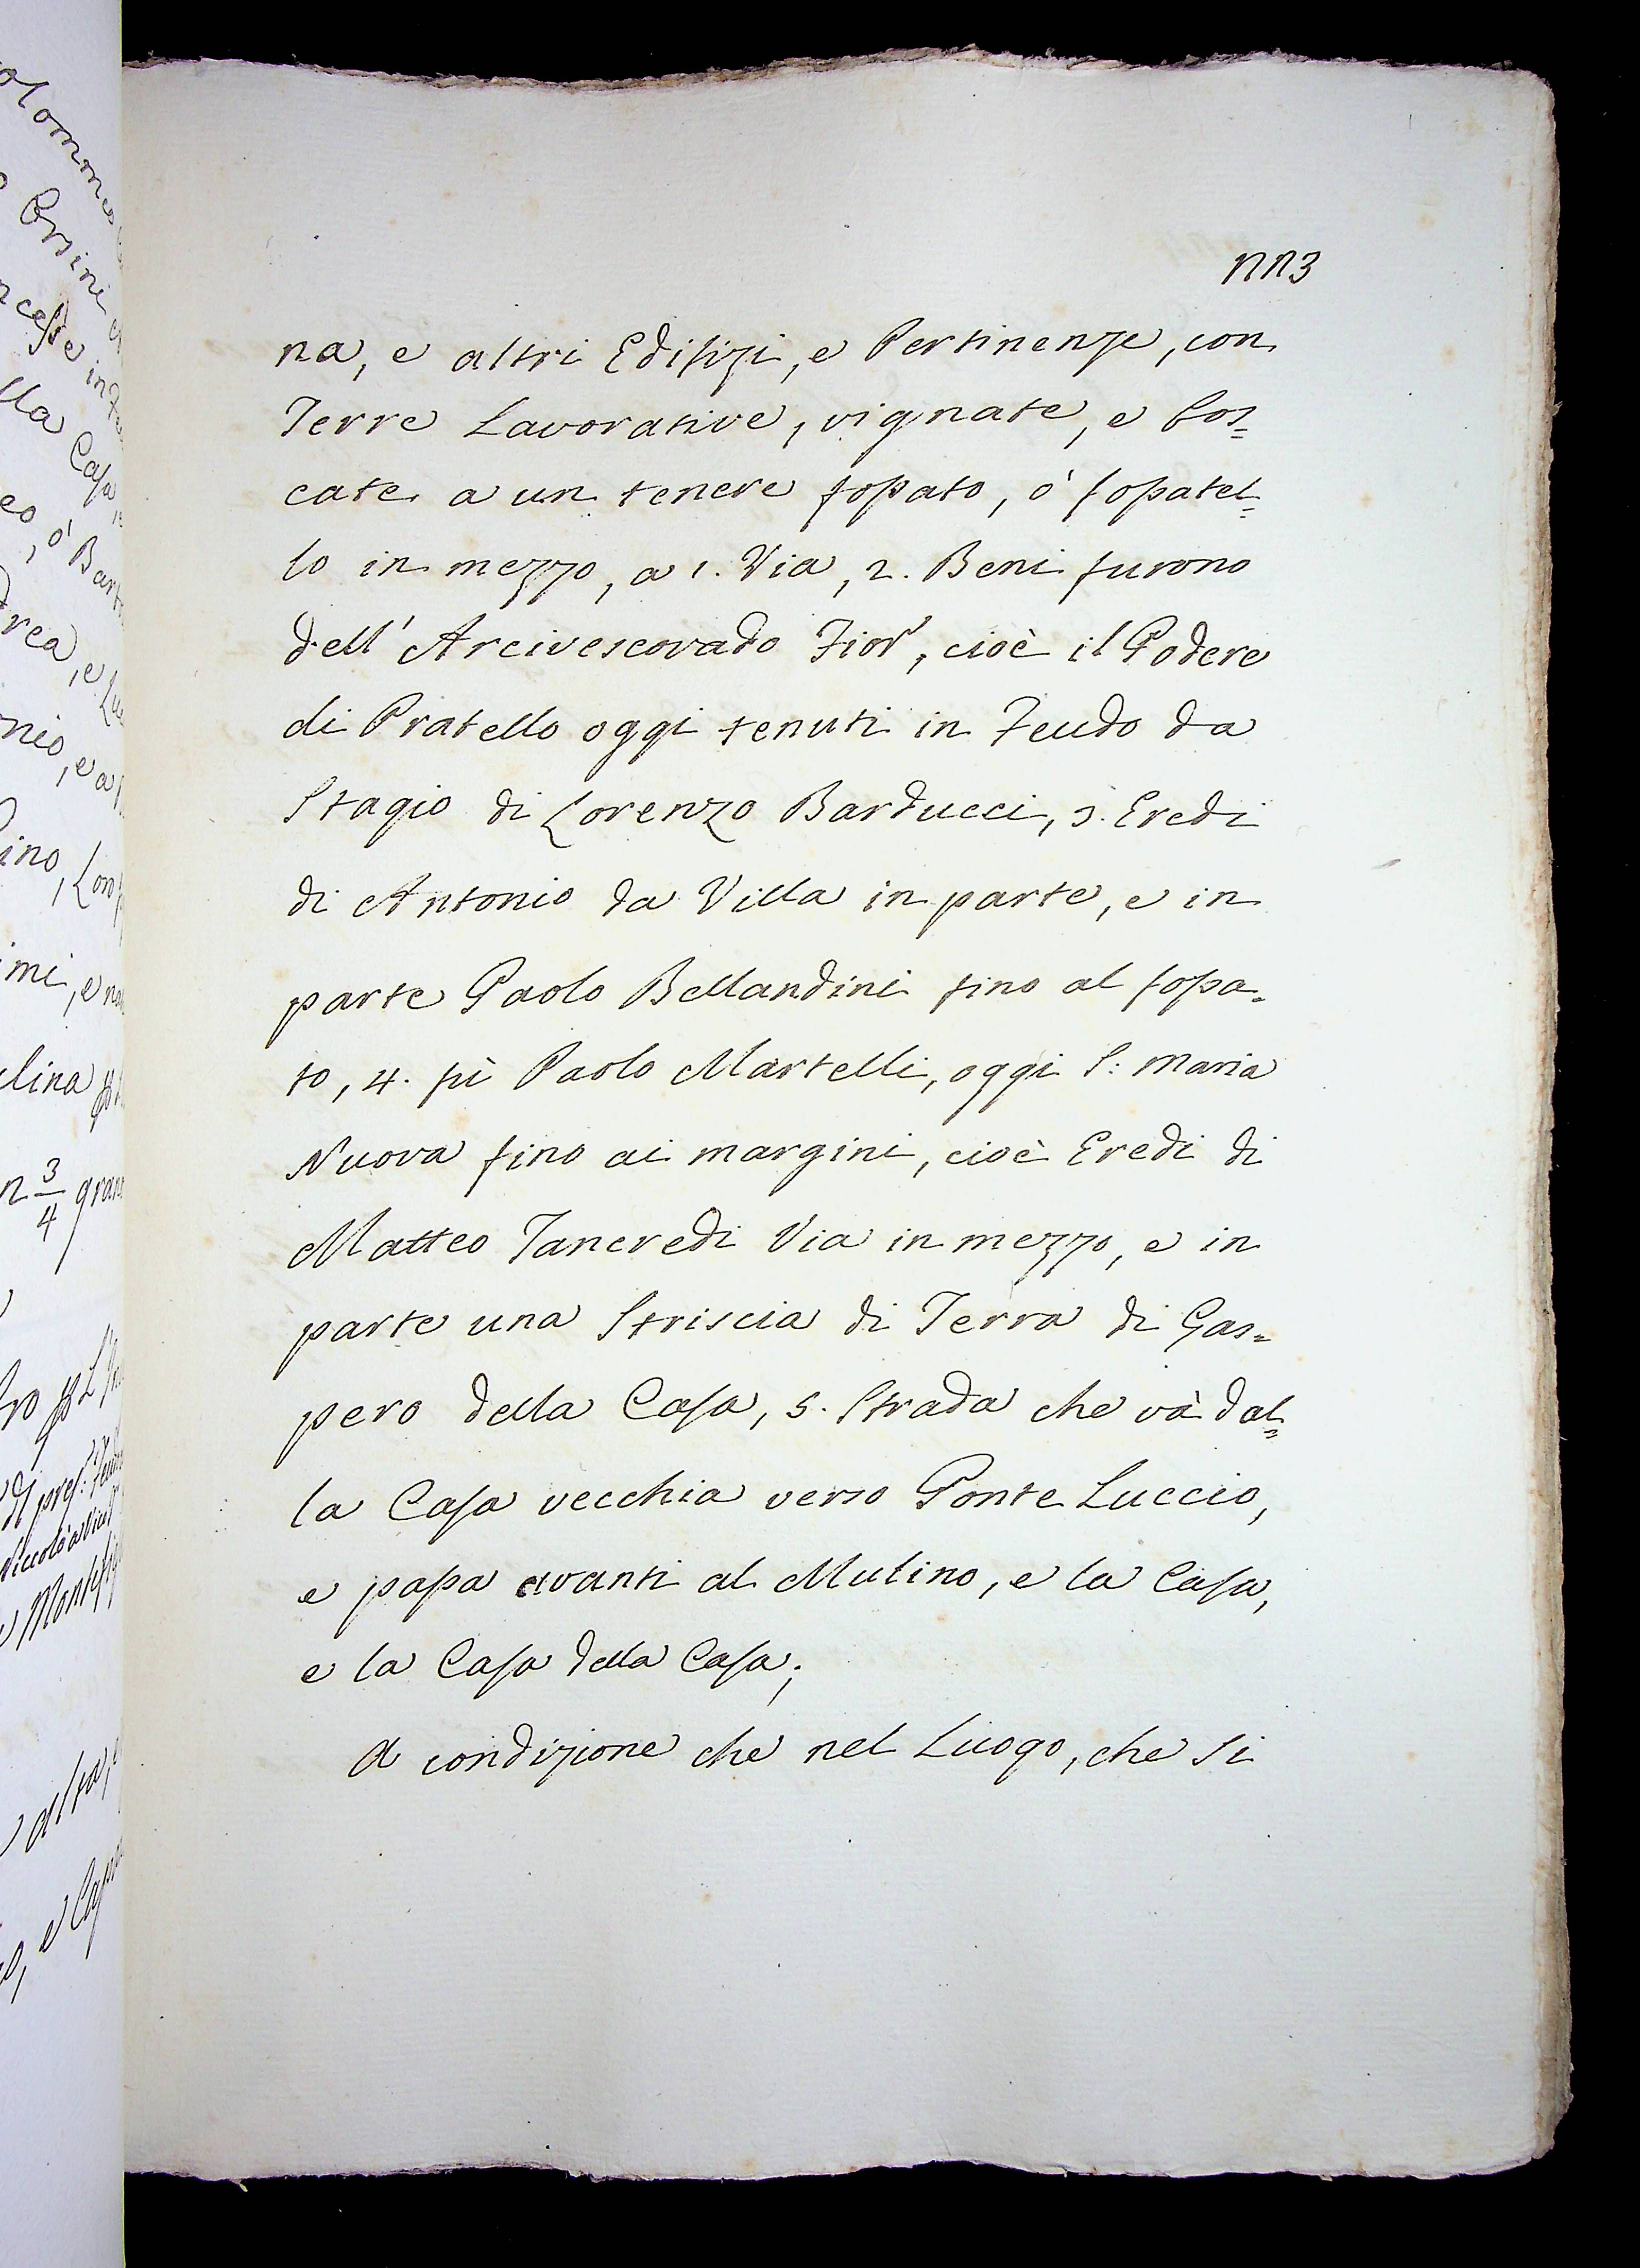 nn3
na, e altri Edifizj, e Pertinenze, con
Terre Lavorative, vignate, e bos=
cate a un tenere fossato, ò fossatel=
lo in mezzo, a 1. Via, 2. Beni furono
dell'Arcivescovado Fior', cioè il Podere
di Pratello oggi tenuti in Feudo da
Stagio di Lorenzo Barducci, 3. Eredi
di Antonio da Villa in parte, e in
parte Paolo Bellandini fino al fossa=
to, 4. pì Paolo Martelli, oggi S: Maria
Nuova fino ai margini, cioè Eredi di
Matteo Tancredi Via in mezzo, e in
parte una Striscia di Terra di Gas=
pero della Casa, 5. Strada che và dal=
la Casa vecchia verso Ponte Luccio,
e passa avanti al Mulino, e la Casa,
e la Casa della Casa;
A condizione che nel Luogo, che si